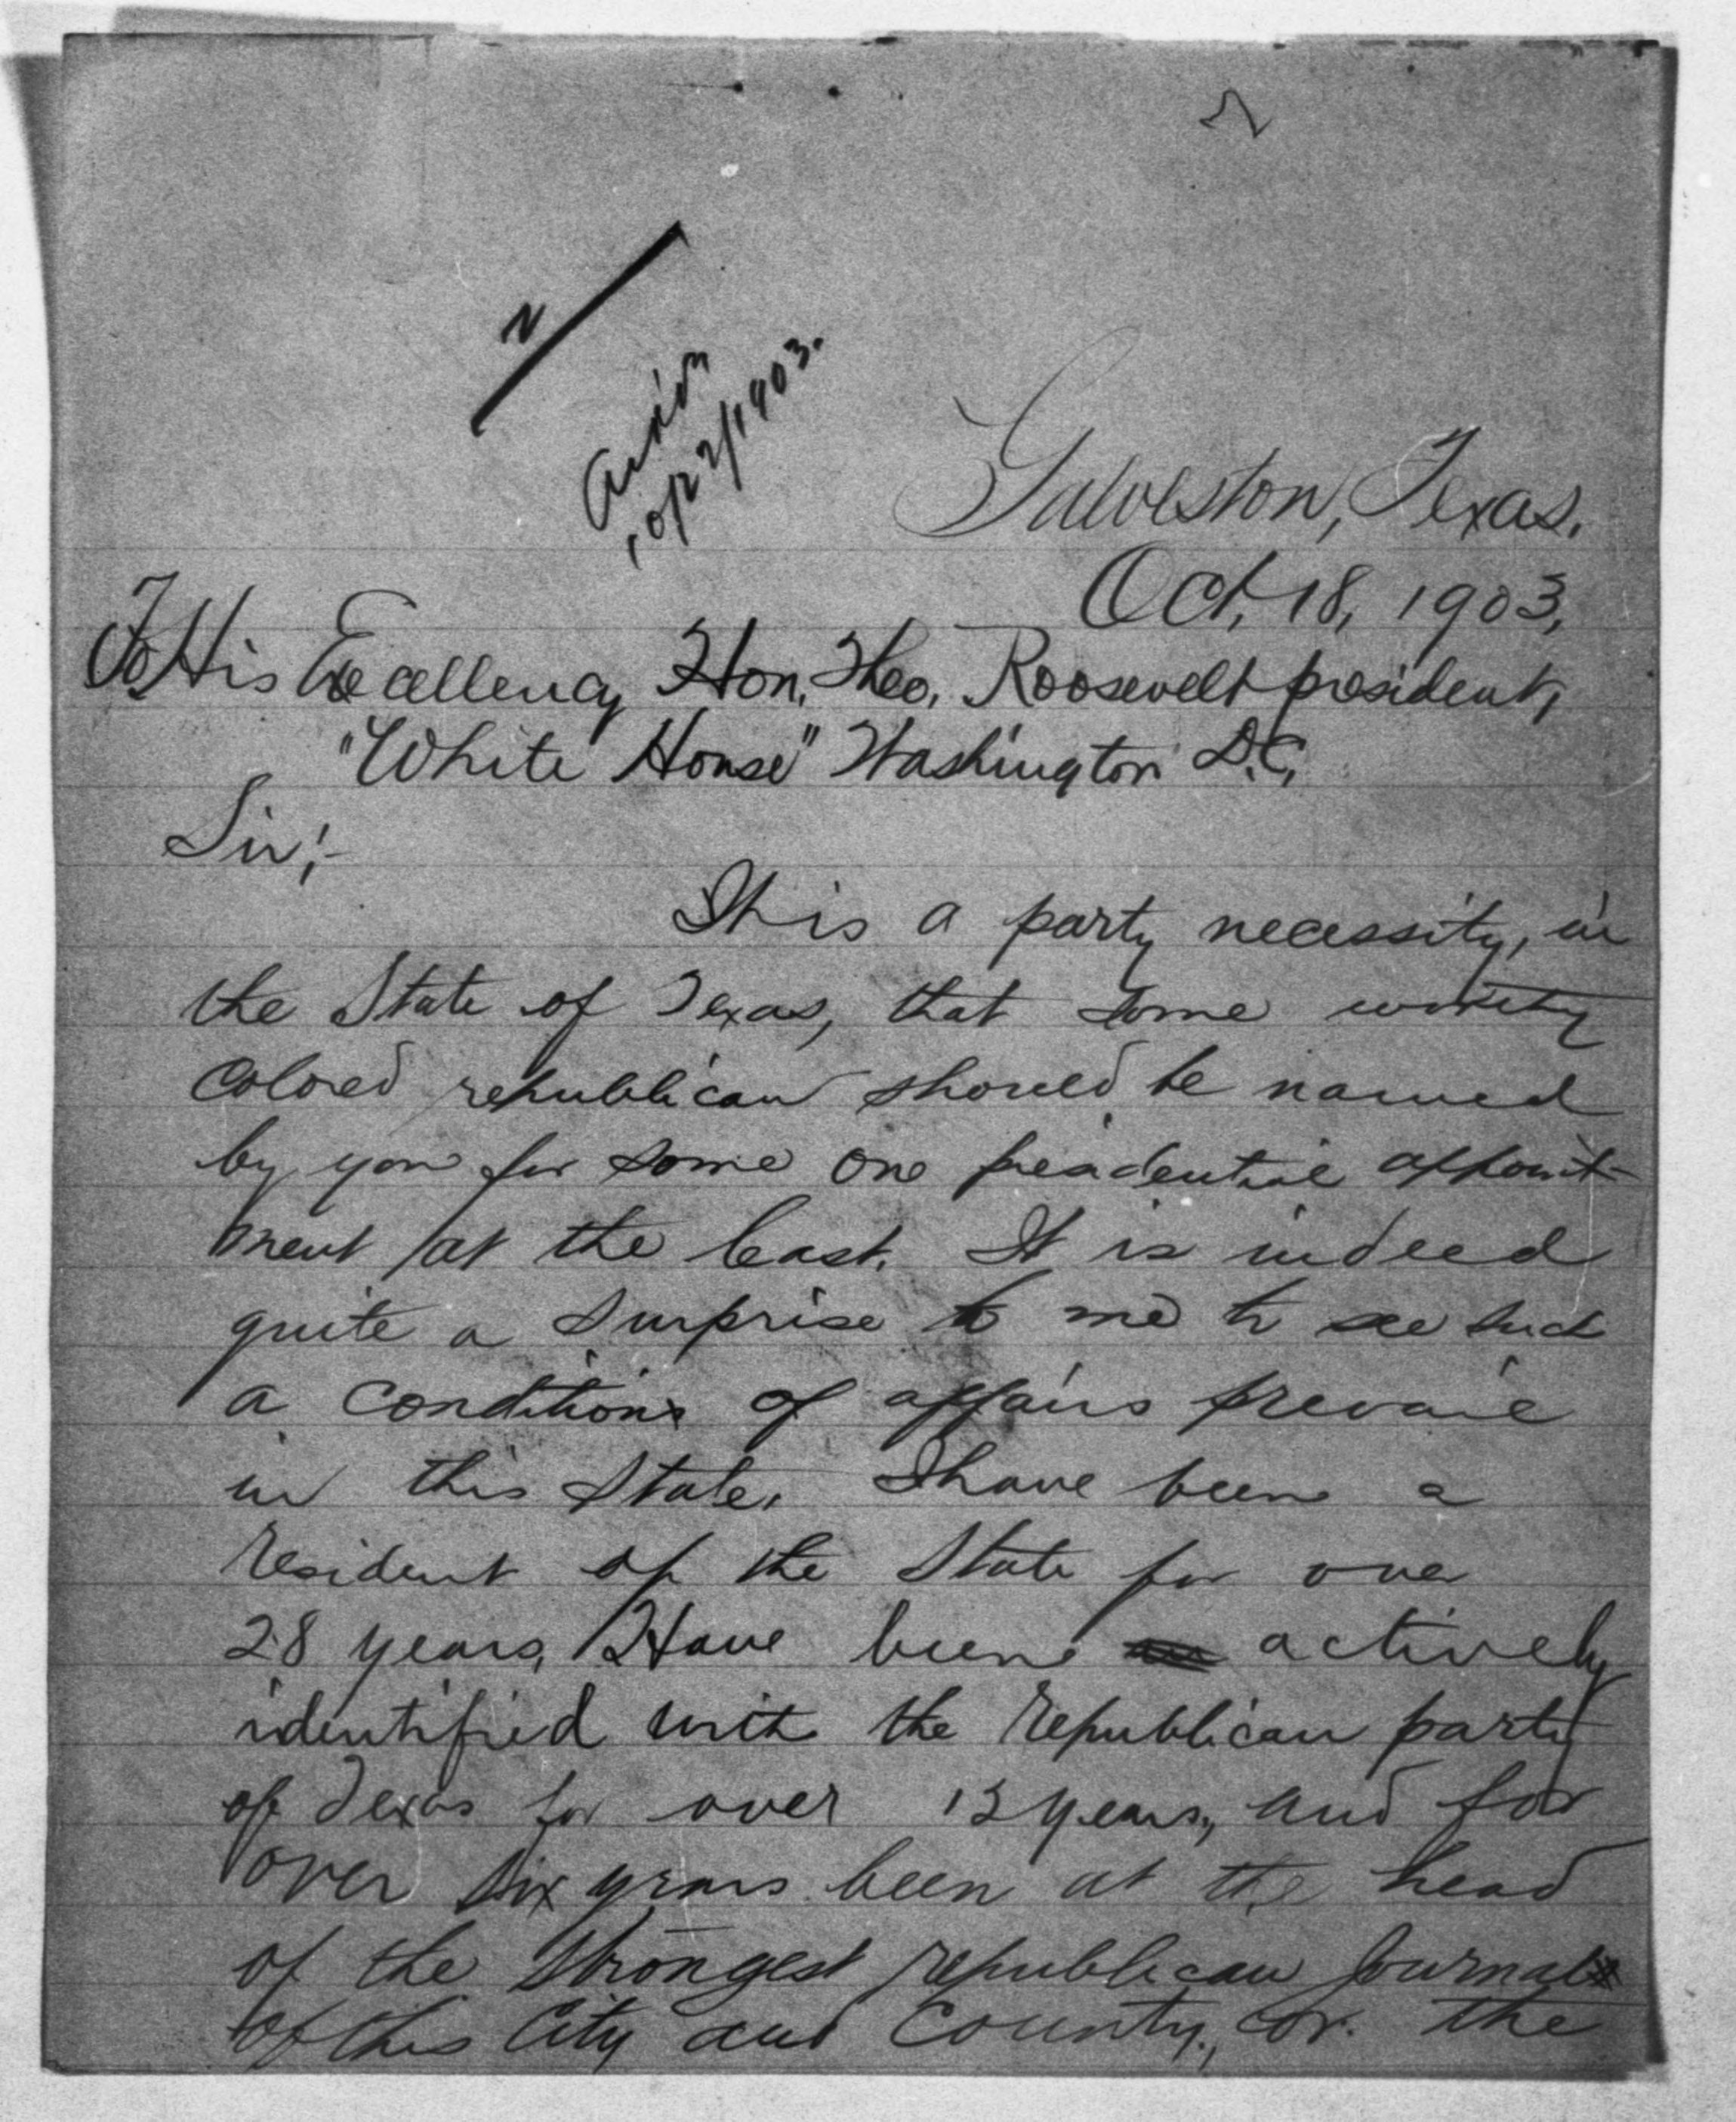 N
Ack'd
10/22/1903.
Galveston, Texas.
Oct. 18, 1903,
To His Excellency Hon. Theo. Roosevelt president,
"White House" Washington D.C.
Sir;-
It is a party necessity, in
the State of Texas, that some worthy
Colored republican should be named
by you for some one presidential appoint-
ment at the least. It is indeed
quite a surprise to me to see such
a condition of affairs prevail
in this State. I have been a
resident of the State for over
28 years, Have been actively
identified with the republican party
of Texas for over 13 years, and for
over six years been at the head
of the strongest republican journal
of this City and County, or the